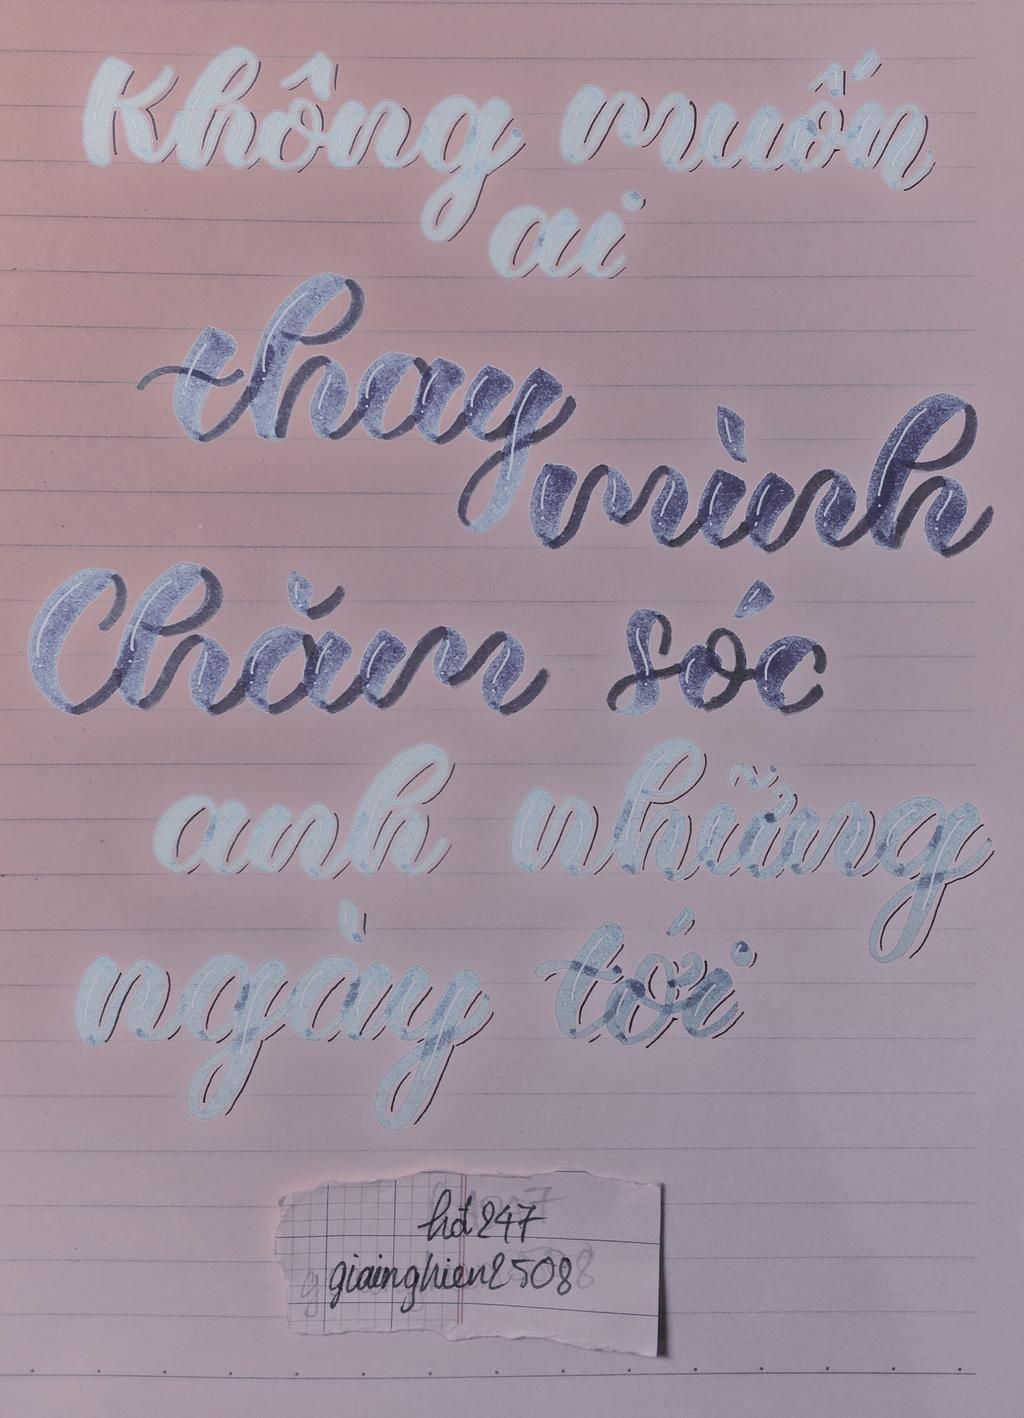 Không muốn
ai
thay
mình
Chăm sóc
anh những
ngày tới
hđ247
giainghien2508